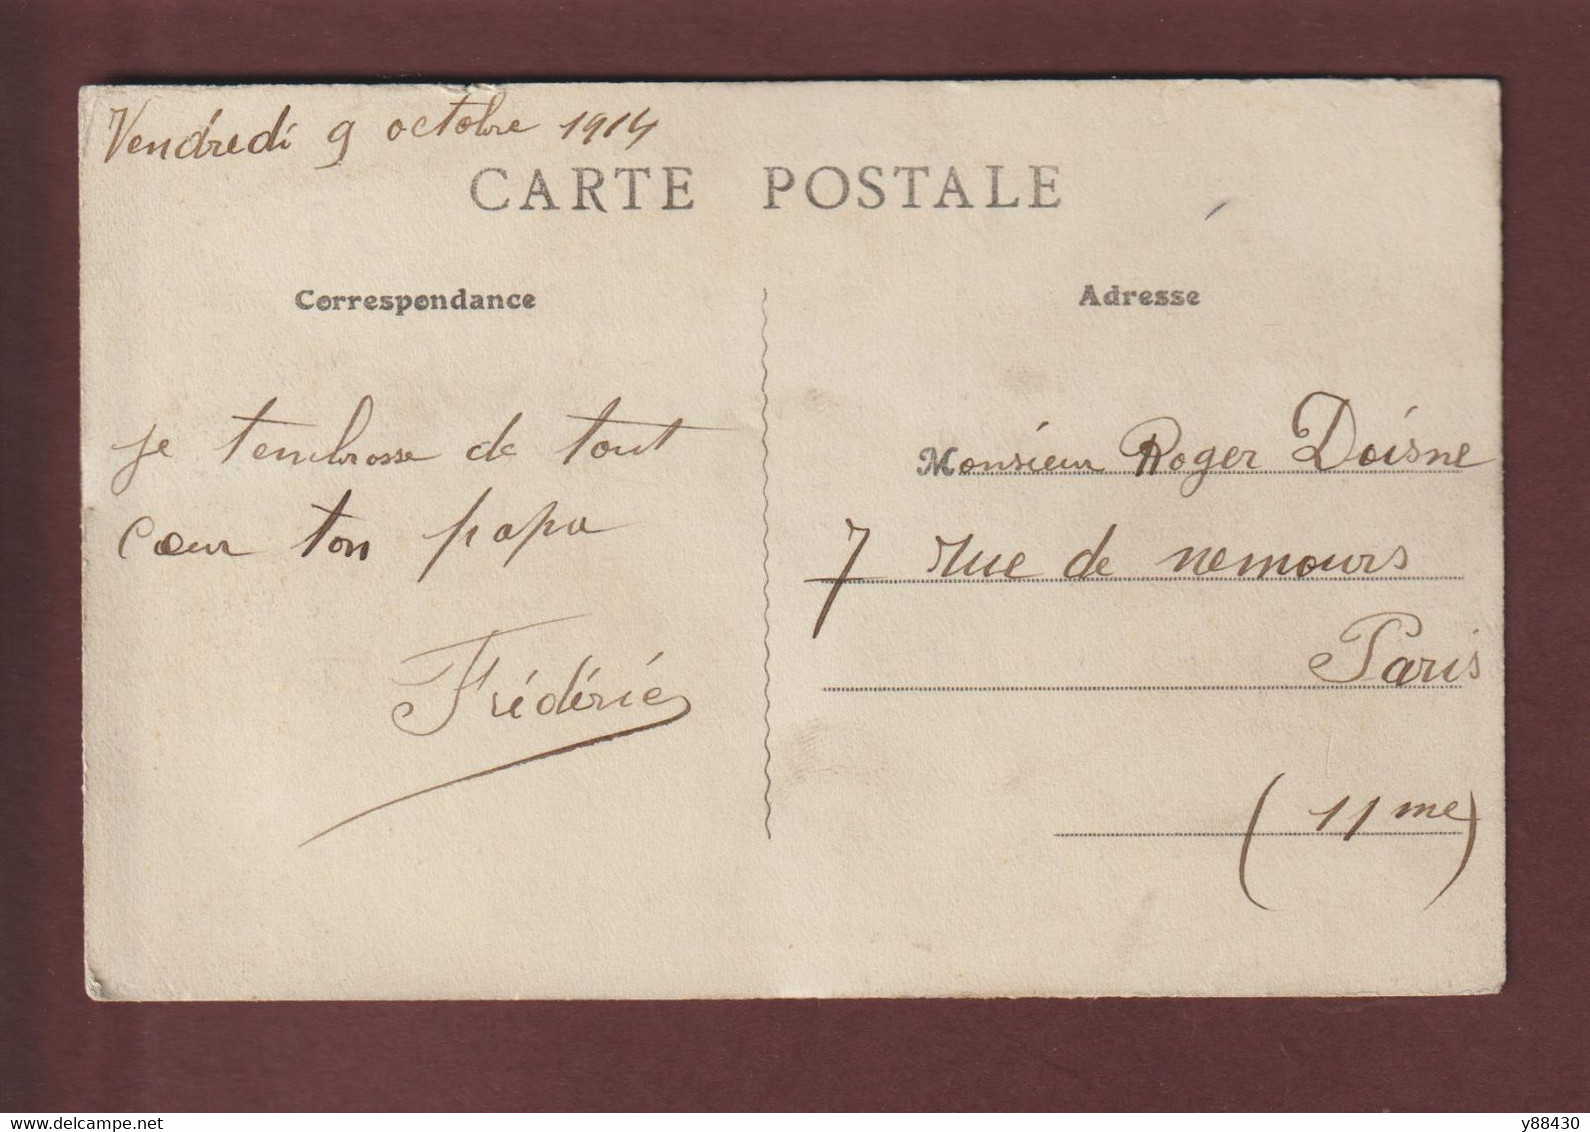 Vendredi 9 octobre 1914
CARTE POSTALE
Correspondance
Je t'embrasse de tout
cœur ton papa
Frédéric
Adresse
Monsieur Roger Doisne
7 rue de nemours
Paris
(11me)
www.delcampe.net
y88430